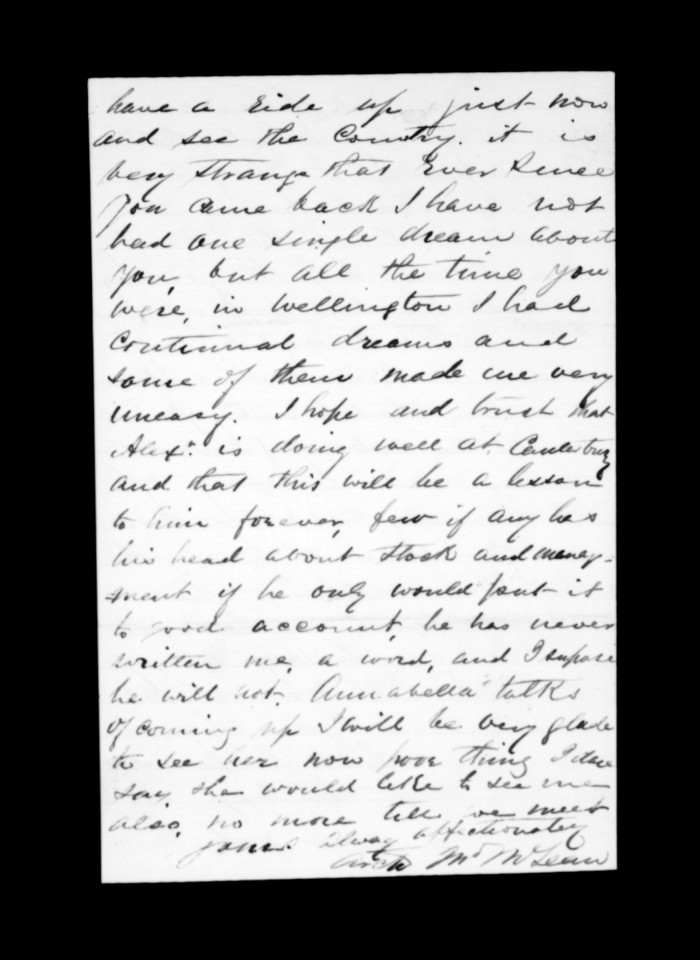 have a ride up just now
and see the Country. it is
very strange that Ever Since
you came back I have not
had one single dream about
you, but all the time you
were, in Wellington I had
continual dreams and
some of them made me very
uneasy. I hope and trust that
Alexr. is doing well at Canterbury
and that this will be a lesson
to him forever, few if any has
his head about stock and manag-
-ment if he only would put it
to good account, he has never
written me, a word, and I supose
he will not. Annabella talks
of coming up I will be very glad
to see her now poor thing I dare
say she would like to see me
also, no more till we meet
yours alway affectionatly
Archd McLean